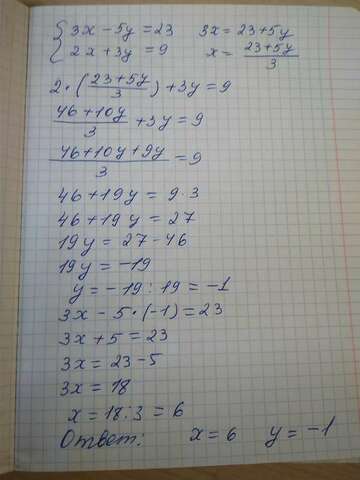 { 3x - 5y = 23    3x = 23 + 5y
2x + 3y = 9    x = (23+5y)/3
2 · ((23+5y)/3) + 3y = 9
(46+10y)/3 + 3y = 9
(46+10y+9y)/3 = 9
46 + 19y = 9 · 3
46 + 19y = 27
19y = 27 - 46
19y = -19
y = -19 : 19 = -1
3x - 5 · (-1) = 23
3x + 5 = 23
3x = 23 - 5
3x = 18
x = 18 : 3 = 6
Ответ:    x = 6    y = -1